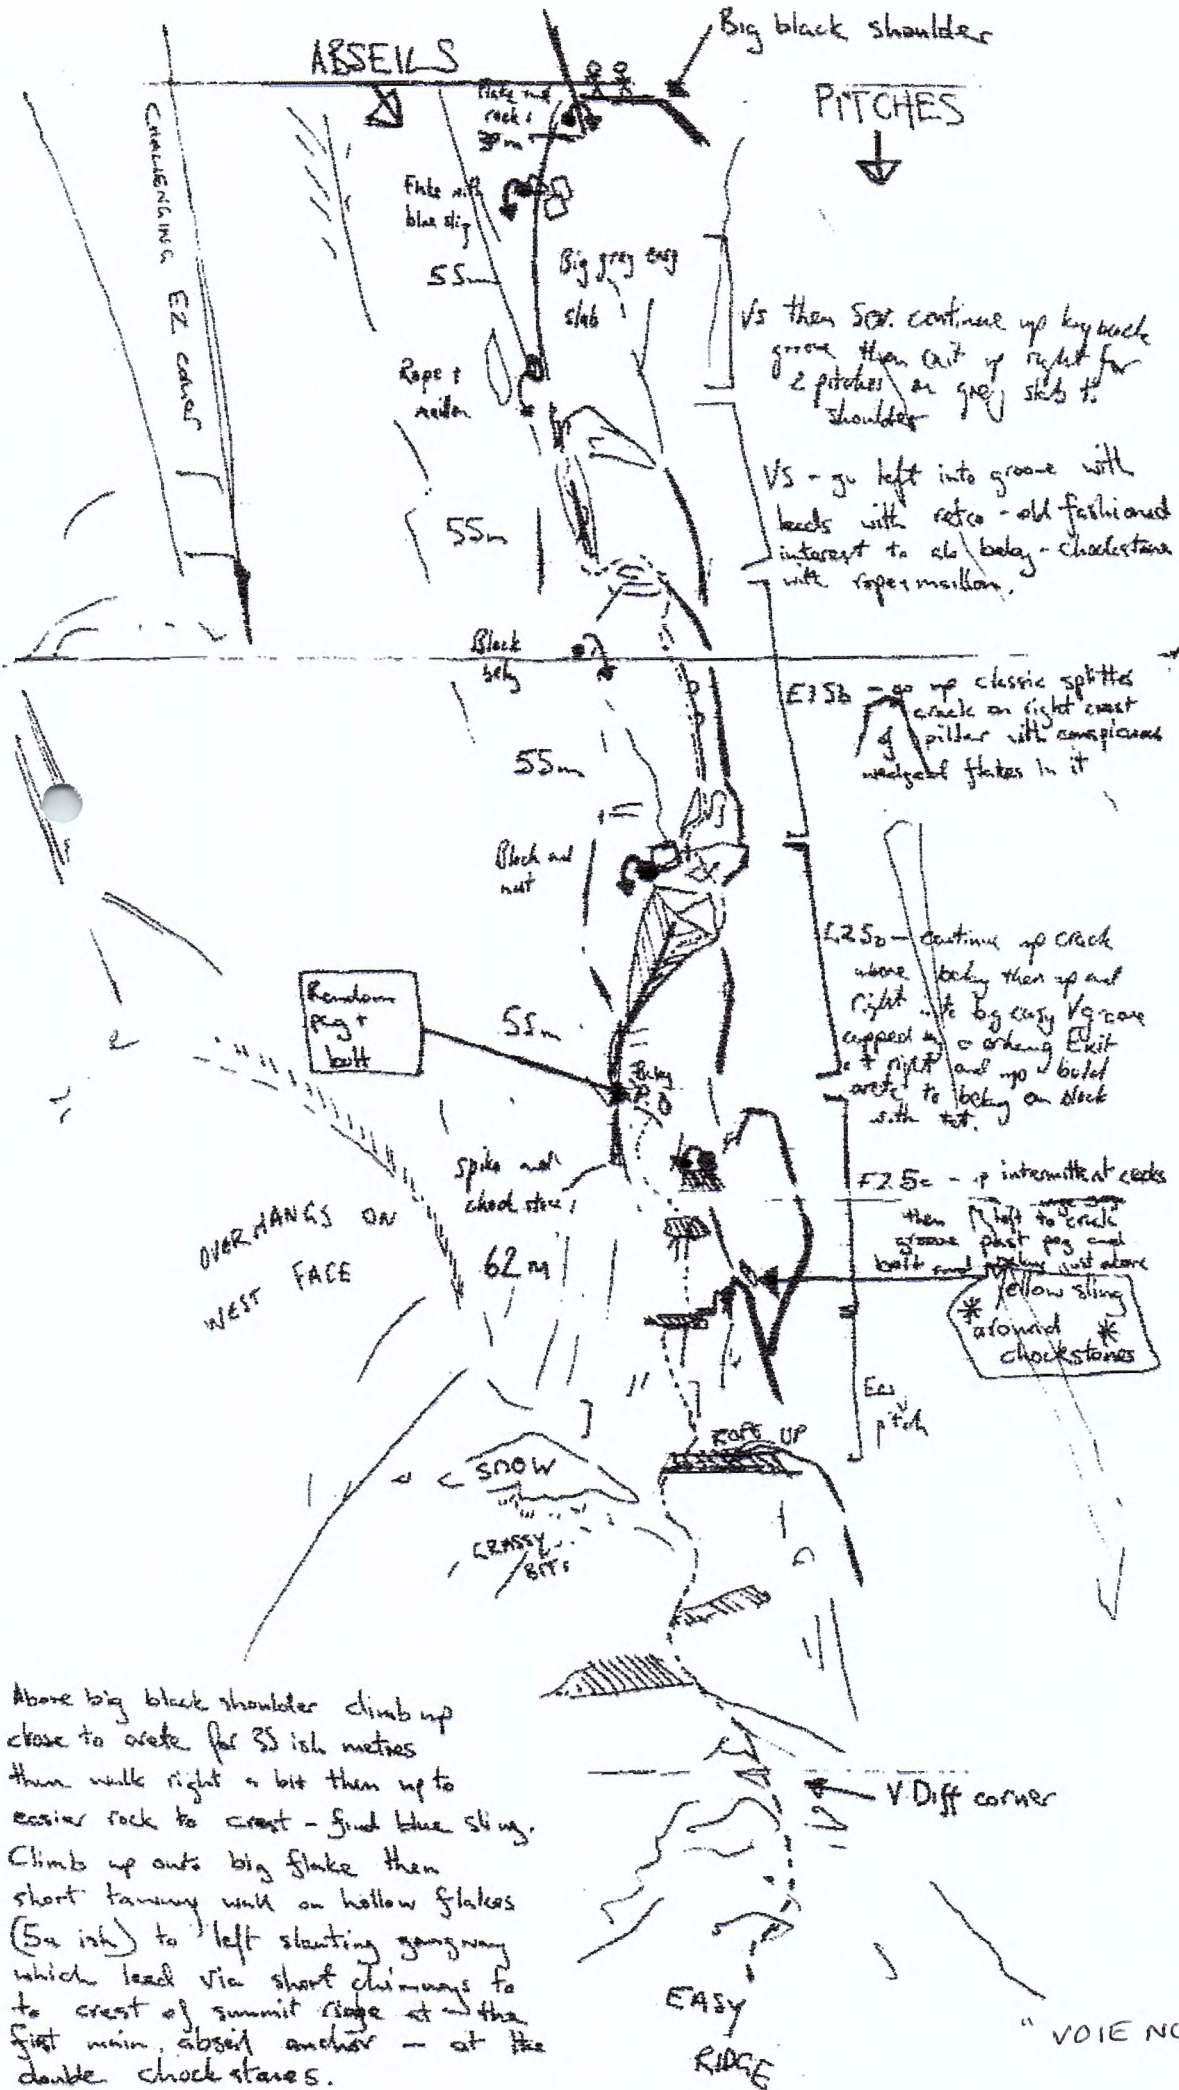 Big black shoulder
ABSEILS
PITCHES
CHALLENGING E2 corner
Flake and
rock
Flake with
blue sling
55m
Big grey easy
slab
VS then Sev. continue up layback
groove then cut up right for
2 pitches on grey slab to
shoulder
Rope +
maillon
VS - go left into groove with
with retro - old fashioned
interest to belay - chockstone
with rope + maillon.
55m
Block
belay
E1 5b - go up classic splitter
crack on right crest
of pillar with conspicuous
wedged flakes in it
55m
Block and
nut
E2 5b - continue up crack
above belay then up and
right into big easy V groove
capped by overhang Exit
right and up bold
arete to belay on block
with tat.
Random
peg +
bolt
55m
Belay
E2 5c - up intermittent cracks
then left to crack
groove past peg and
bolt and belay just above
spike and
chockstone
62m
Yellow sling
* around *
chockstones
OVERHANGS ON
WEST FACE
Easy
pitch
ROPE UP
SNOW
GRASSY
BITS
Above big black shoulder climb up
close to arete for 35 ish metres
then walk right a bit then up to
easier rock to crest - find blue sling.
Climb up onto big flake then
short walk on hollow flakes
(5a ish) to left slanting gangway
which lead via short chimneys to
to crest of summit ridge at the
first main abseil anchor - at the
double chockstones.
V Diff corner
EASY
RIDGE
" VOIE NO